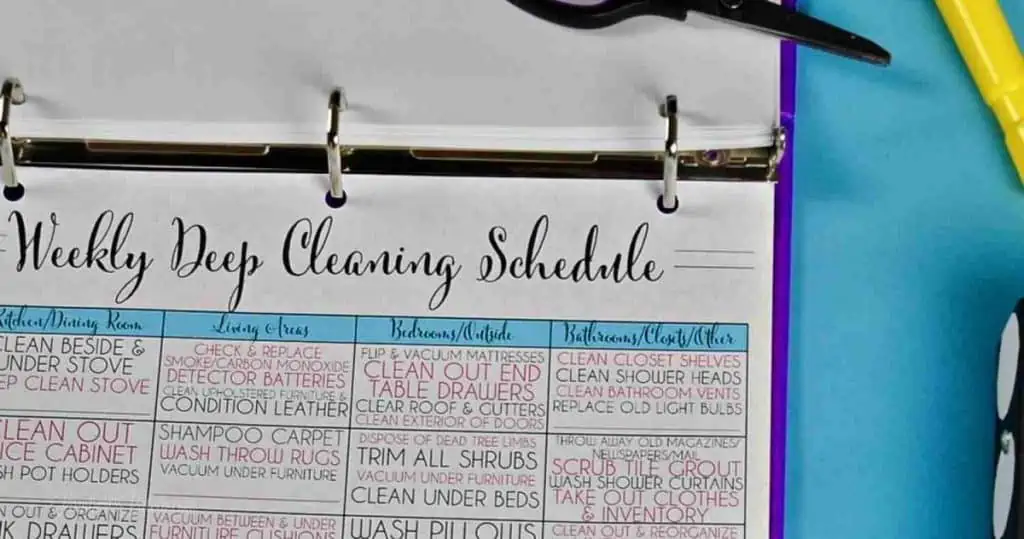 Weekly Deep Cleaning Schedule
Kitchen/Dining Room
CLEAN BESIDE &
UNDER STOVE
DEEP CLEAN STOVE
Living Areas
CHECK & REPLACE
SMOKE/CARBON MONOXIDE
DETECTOR BATTERIES
CLEAN UPHOLSTERED FURNITURE &
CONDITION LEATHER
Bedrooms/Outside
FLIP & VACUUM MATTRESSES
CLEAN OUT END
TABLE DRAWERS
CLEAR ROOF & GUTTERS
CLEAN EXTERIOR OF DOORS
Bathrooms/Closets/Other
CLEAN CLOSET SHELVES
CLEAN SHOWER HEADS
CLEAN BATHROOM VENTS
REPLACE OLD LIGHT BULBS
CLEAN OUT
ICE CABINET
SH POT HOLDERS
SHAMPOO CARPET
WASH THROW RUGS
VACUUM UNDER FURNITURE
DISPOSE OF DEAD TREE LIMBS
TRIM ALL SHRUBS
VACUUM UNDER FURNITURE
CLEAN UNDER BEDS
THROW AWAY OLD MAGAZINES/
NEWSPAPERS/MAIL
SCRUB TILE GROUT
WASH SHOWER CURTAINS
TAKE OUT CLOTHES
& INVENTORY
AN OUT & ORGANIZE
NK DRAWERS
VACUUM BETWEEN & UNDER
FURNITURE CUSHIONS
WASH PILLOWS
CLEAN OUT & REORGANIZE